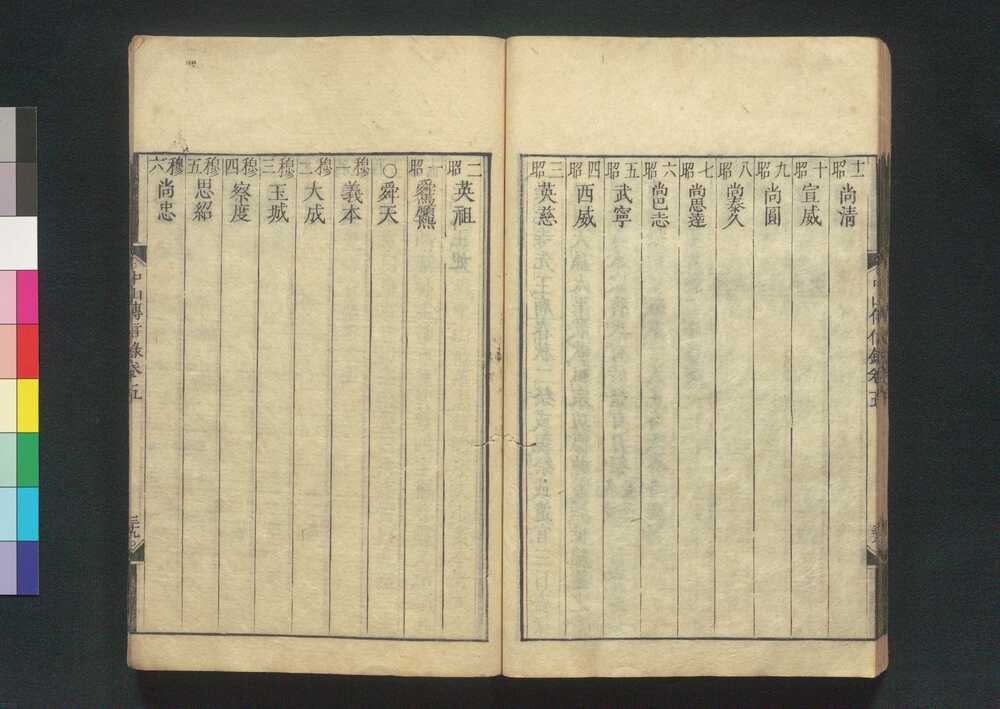 十一昭 尚清
十昭 宣威
九昭 尚圓
八昭 尚泰久
七昭 尚思達
六昭 尚巴志
五昭 武寧
四昭 西威
三昭 英慈
二昭 英祖
一昭 舜馬順熙
〇 舜天
穆一 義本
穆二 大成
穆三 玉城
穆四 察度
穆五 思紹
穆六 尚忠
中山傳信錄卷五